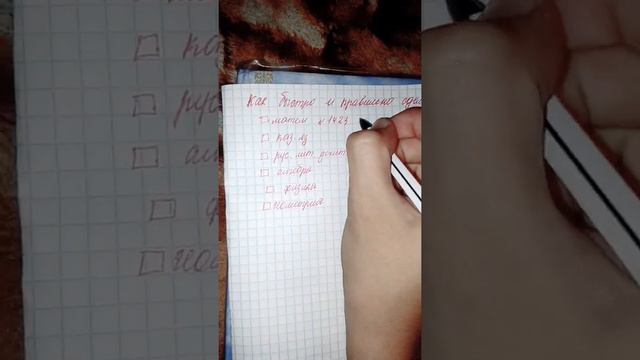 Как быстро и правильно сдел
матем №1423
каз яз
рус. лит. дочит
алгебра
физика
геометрия